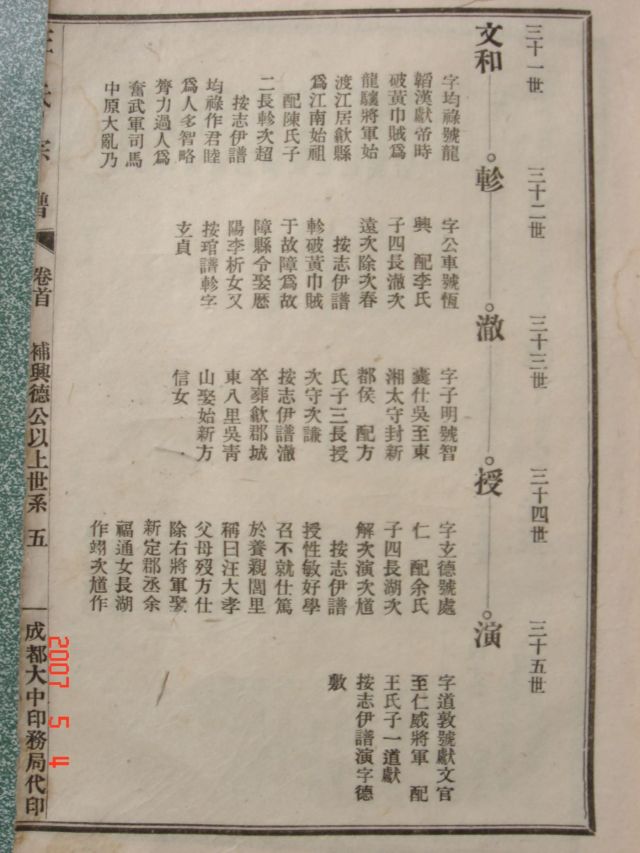 三十一世
三十二世
三十三世
三十四世
三十五世
文和
軫
澈
授
演
字均祿號龍
韜漢獻帝時
破黃巾賊爲
龍驤將軍始
渡江居歙縣
爲江南始祖
配陳氏子
二長軫次超
按志伊譜
均祿作君睦
爲人多智略
膂力過人爲
奮武軍司馬
中原大亂乃
字公車號恆
興 配李氏
子四長澈次
遠次除次春
按志伊譜
軫破黃巾賊
于故障爲故
障縣令娶歷
陽李析女又
按琯譜軫字
玄貞
字子明號智
囊仕吳至東
湘太守封新
都侯 配方
氏子三長授
次守次謙
按志伊譜澈
卒葬歙郡城
東八里吳青
山娶始新方
信女
字玄德號處
仁 配余氏
子四長湖次
解次演次馗
按志伊譜
授性敏好學
召不就仕篤
於養親閭里
稱曰汪大孝
父母歿方仕
除右將軍娶
新定郡丞余
福通女長湖
作翊次馗作
字道敦號獻文官
至仁威將軍 配
王氏子一道獻
按志伊譜演字德
敷
氏宗譜
卷首
補興德公以上世系
五
成都大中印務局代印
2007 5 4